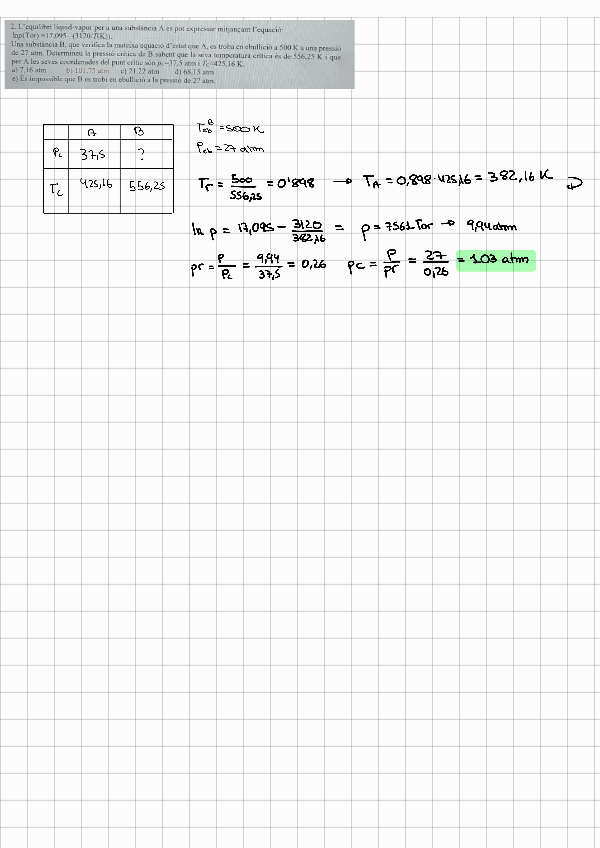 2. L'equilibri líquid-vapor per a una substància A es pot expressar mitjançant l'equació:
lnp(Tor) =17,095 - (3120/T(K)).
Una substància B, que verifica la mateixa equació d'estat que A, es troba en ebullició a 500 K a una pressió
de 27 atm. Determineu la pressió crítica de B sabent que la seva temperatura crítica és de 556,25 K i que
per A les seves coordenades del punt crític són pc=37,5 atm i Tc=425,16 K.
a) 7,16 atm b) 101,75 atm c) 21,22 atm d) 68,15 atm
e) És impossible que B es trobi en ebullició a la pressió de 27 atm.
A B
Pc 37,5 ?
Tc 425,16 556,25
Teb B = 500 K
Peb = 27 atm
Tr = 500/556,25 = 0'898 → TA = 0,898·425,16 = 382,16 K
ln p = 17,095 - 3120/382,16 = p = 7561 Tor → 9,94 atm
pr = P/Pc = 9,94/37,5 = 0,26 pc = P/pr = 27/0,26 = 103 atm